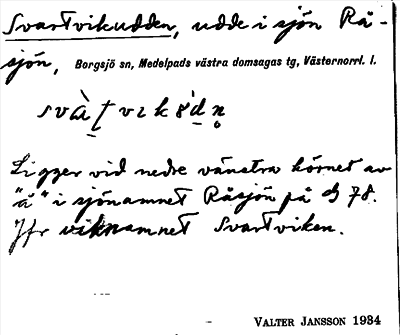 Svartvikudden, udde i sjön Rå-
sjön, Borgsjö sn, Medelpads västra domsagas tg, Västernorrl. l.
Ligger vid nedre vänstra hörnet av
"å" i sjönamnet Råsjön på
78.
Jfr viknamnet Svartviken.
VALTER JANSSON 1934